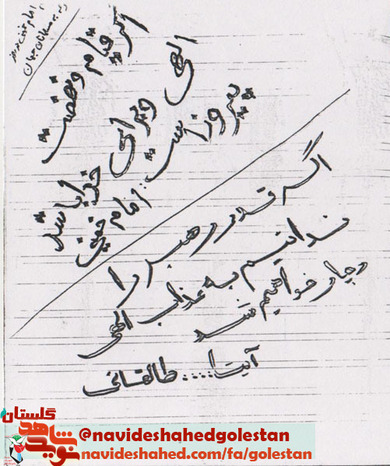 رهبر مسلمانان جهان
اگر قیام و نهضت
الهی و برای خدا باشد
پیروز است: امام خمینی
اگر قدر رهبر را
ندانیم به عذاب الهی
دچار خواهیم شد
آیت ا.... طالقانی
گلستان
نوید شاهد
@navideshahedgolestan
navideshahed.com/fa/golestan